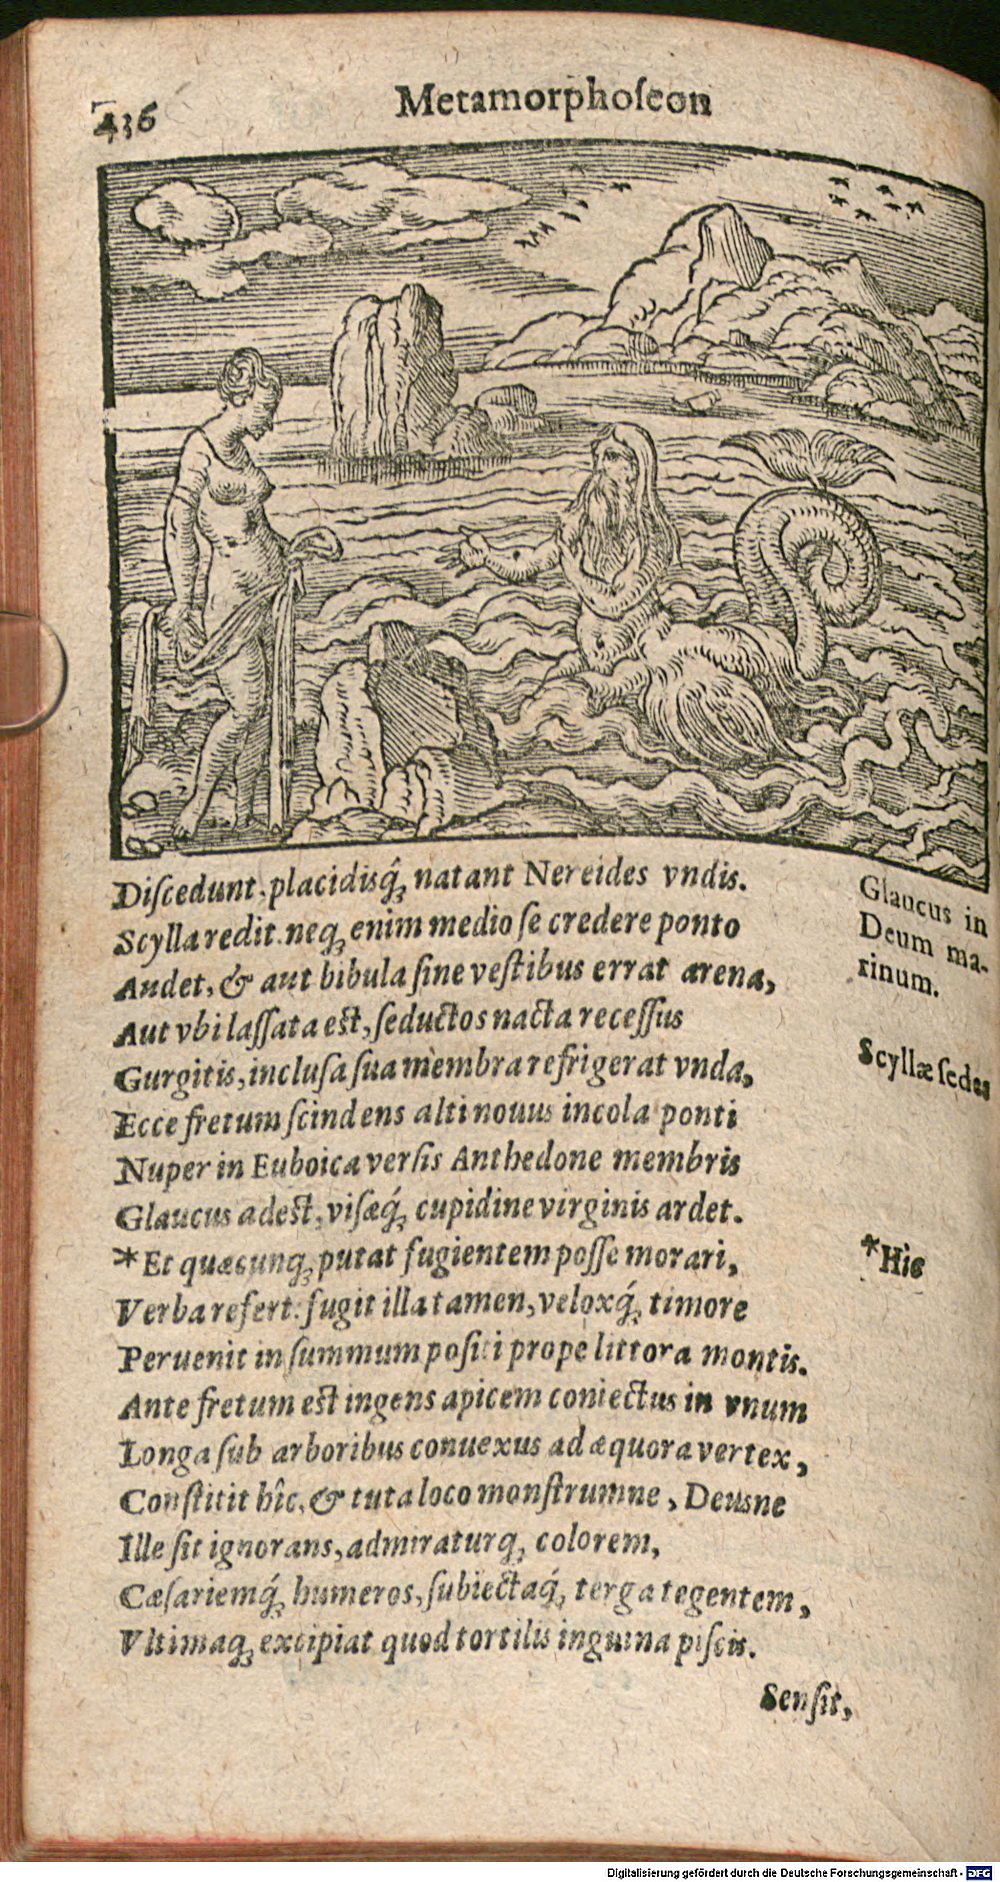 436
Metamorphoſeon
Diſcedunt, placidisq́ue natant Nereides vndis.
Scylla redit. neq; enim medio ſe credere ponto
Audet, & aut bibula ſine veſtibus errat arena,
Aut vbi laſſata eſt, ſeductos nacta receſſus
Gurgitis, incluſa ſua membra refrigerat vnda,
Ecce fretum ſcindens alti nouus incola ponti
Nuper in Euboica verſis Anthedone membris
Glaucus adeſt, viſæq́; cupidine virginis ardet.
*Et quæcunq; putat fugientem poſſe morari,
Verba refert: fugit illa tamen, veloxq́; timore
Peruenit in ſummum poſiti prope littora montis.
Ante fretum eſt ingens apicem coniectus in vnum
Longa ſub arboribus conuexus ad æquora vertex,
Conſtitit hîc, & tuta loco monſtrumne, Deusne
Ille ſit ignorans, admiraturq; colorem,
Cæſariemq́; humeros, ſubiectaq́; terga tegentem,
Vltimaq; excipiat quod tortilis inguina piſcis.
Senſit,
Glaucus in
Deum ma-
rinum.
Scyllæ ſedes
*Hic
Digitalisierung gefördert durch die Deutsche Forschungsgemeinschaft - DFG